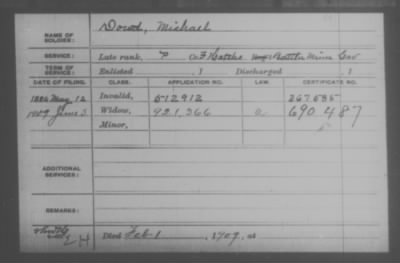 NAME OF SOLDIER: Dowd, Michael
SERVICE: Late rank, P Co. F Hatchs Battn Minn Cav
TERM OF SERVICE: Enlisted 1 Discharged 1
DATE OF FILING. CLASS. APPLICATION NO. LAW. CERTIFICATE NO.
1884 May 12 Invalid, 512912 267585
1909 June 3 Widow, 921,366 690487
Minor,
ADDITIONAL SERVICES:
REMARKS:
Died Feb 1, 1909, at